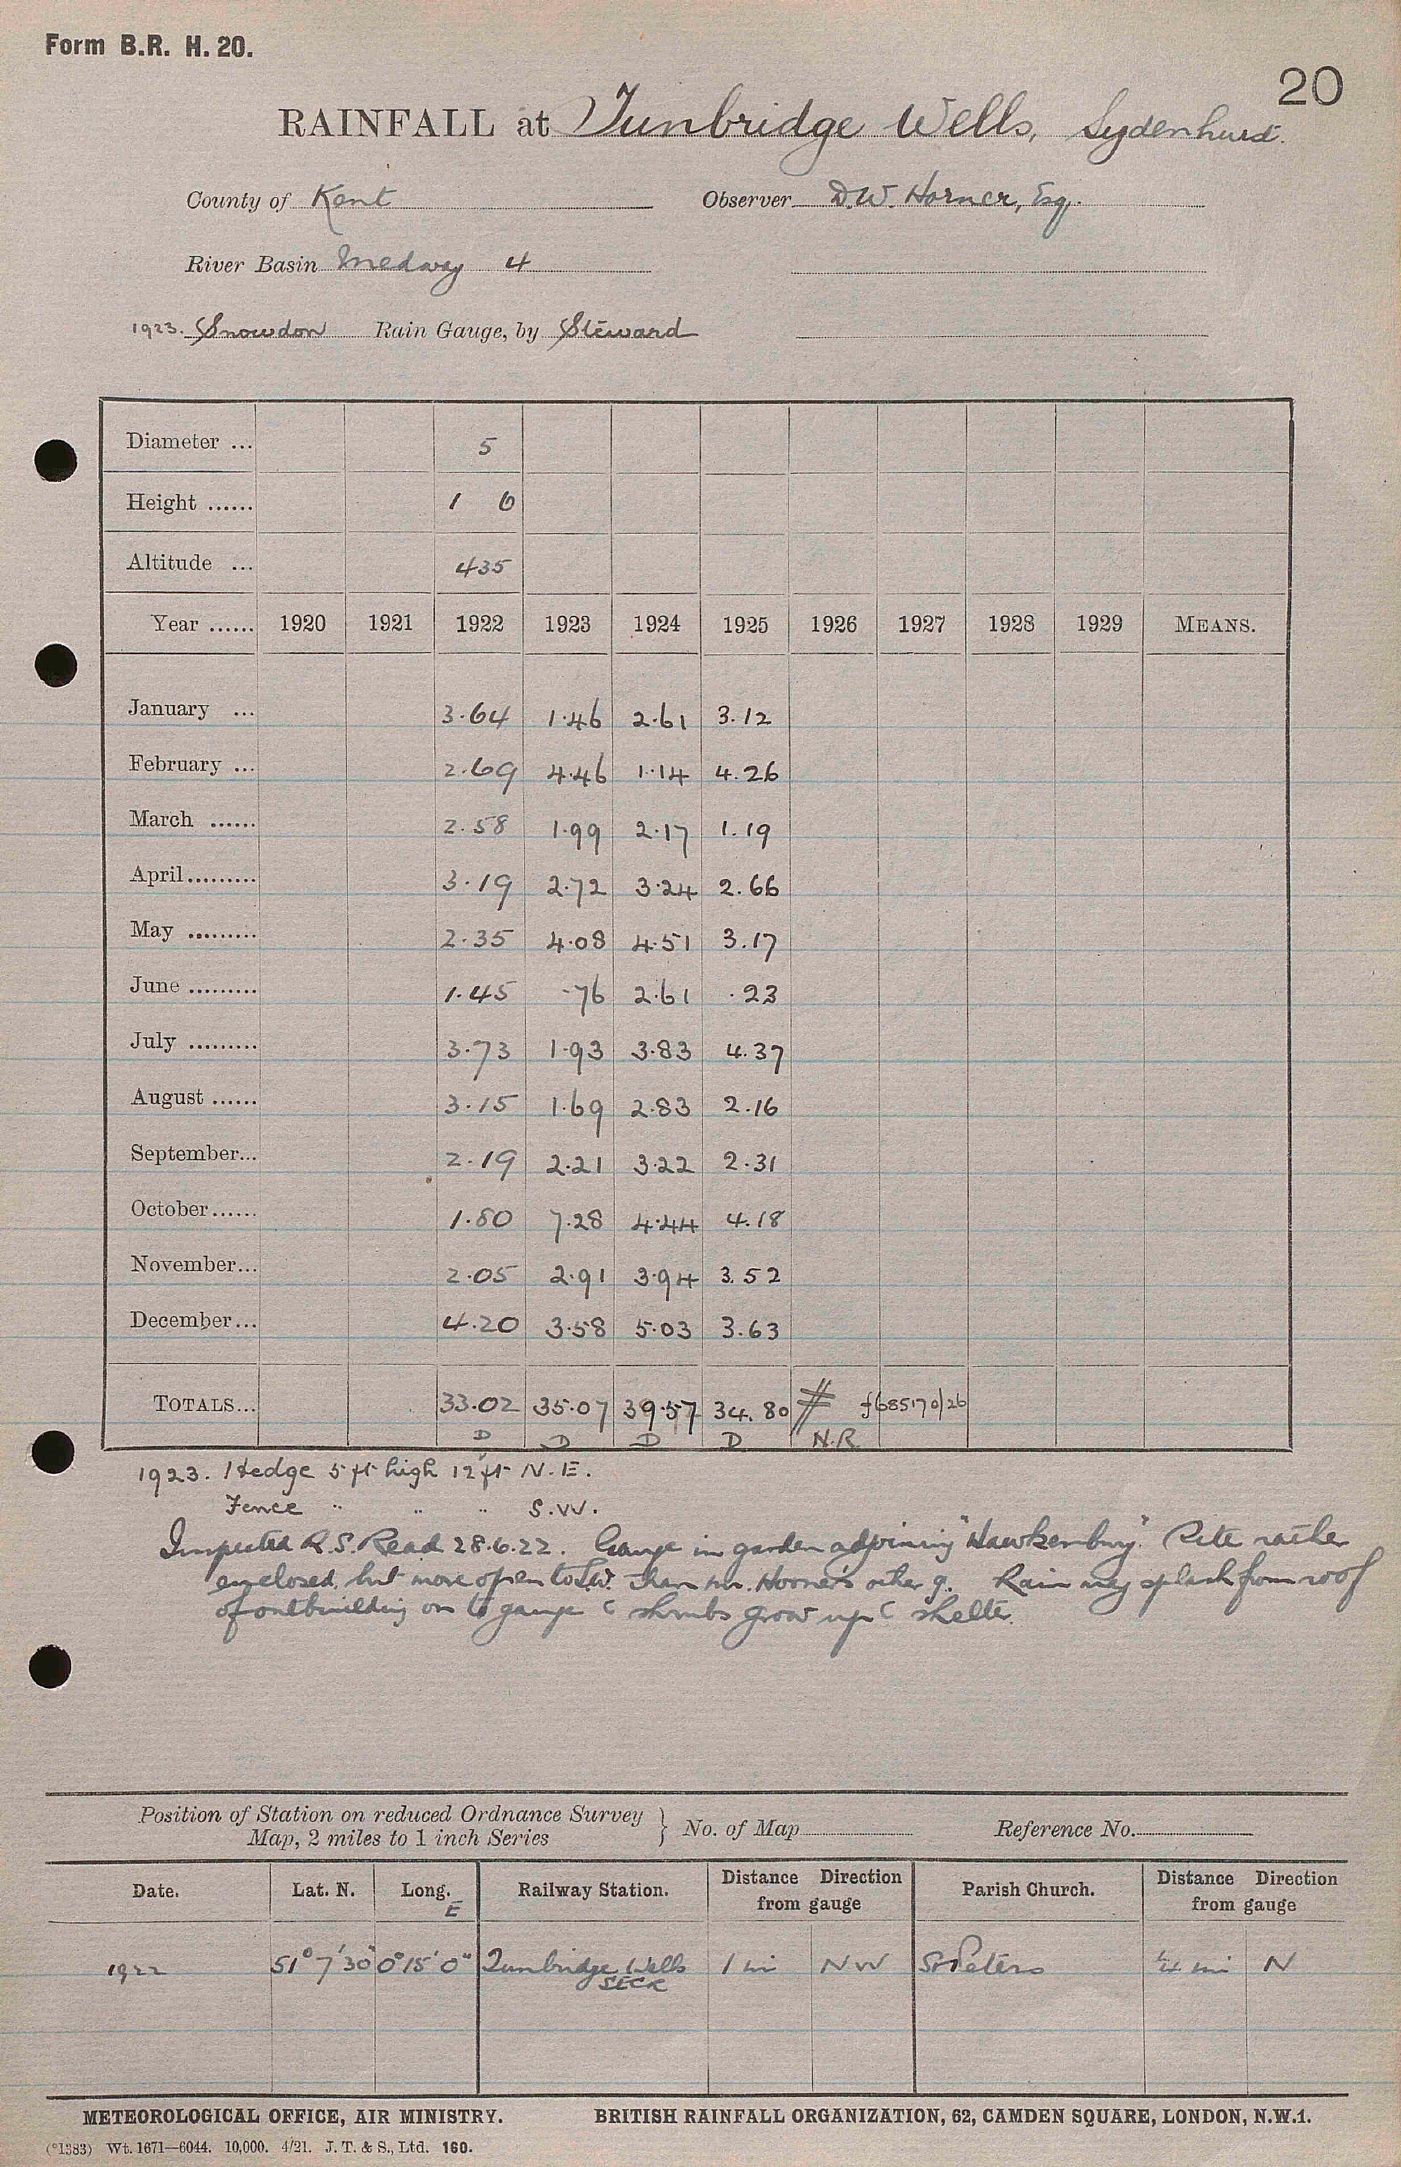 Form B.R. H. 20.
20
RAINFALL at Tunbridge Wells, Sydenhurst.
County of Kent Observer D.W. Horner, Esq.
River Basin Medway 4
1923. Snowdon Rain Gauge, by Steward
Diameter ... 5
Height ...... 1 0
Altitude ... 435
Year ...... 1920 1921 1922 1923 1924 1925 1926 1927 1928 1929 MEANS.
January ... 3.64 1.46 2.61 3.12
February ... 2.69 4.46 1.14 4.26
March ...... 2.58 1.99 2.17 1.19
April......... 3.19 2.72 3.24 2.66
May ......... 2.35 4.08 4.51 3.17
June ......... 1.45 .76 2.61 .23
July ......... 3.73 1.93 3.83 4.37
August ...... 3.15 1.69 2.83 2.16
September... 2.19 2.21 3.22 2.31
October...... 1.80 7.28 4.44 4.18
November... 2.05 2.91 3.94 3.52
December... 4.20 3.58 5.03 3.63
TOTALS... 33.02 35.07 39.57 34.80 # f685170/26
D D D D N.R.
1923. Hedge 5 ft high 12 ft N.E.
Fence " " " S.W.
Inspected R.S. Read 28.6.22. Gauge in garden adjoining "Hawkenbury." Site rather
enclosed, but more open to S.W. than Mr. Horner's other g. Rain may splash from roof
of outbuilding on to gauge & shrubs grow up & shelter.
Position of Station on reduced Ordnance Survey
Map, 2 miles to 1 inch Series } No. of Map Reference No.
Date. Lat. N. Long. E Railway Station. Distance Direction from gauge Parish Church. Distance Direction from gauge
1922 51° 7' 30" 0° 15' 0" Tunbridge Wells 1 mi NW St Peters ¼ mi N
SECR
METEOROLOGICAL OFFICE, AIR MINISTRY. BRITISH RAINFALL ORGANIZATION, 62, CAMDEN SQUARE, LONDON, N.W.1.
(*1383) Wt. 1671—6044. 10,000. 4/21. J. T. & S., Ltd. 160.